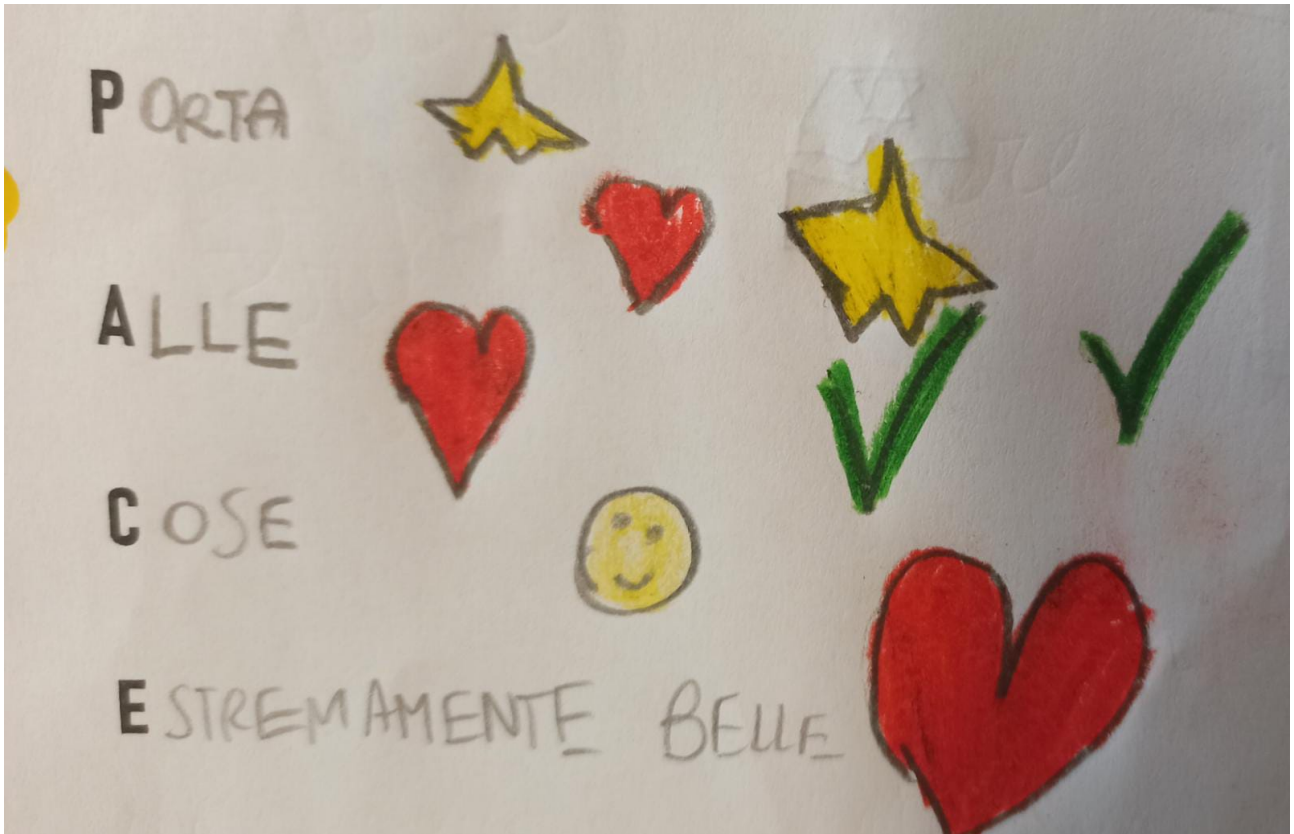 PORTA
ALLE
COSE
ESTREMAMENTE BELLE